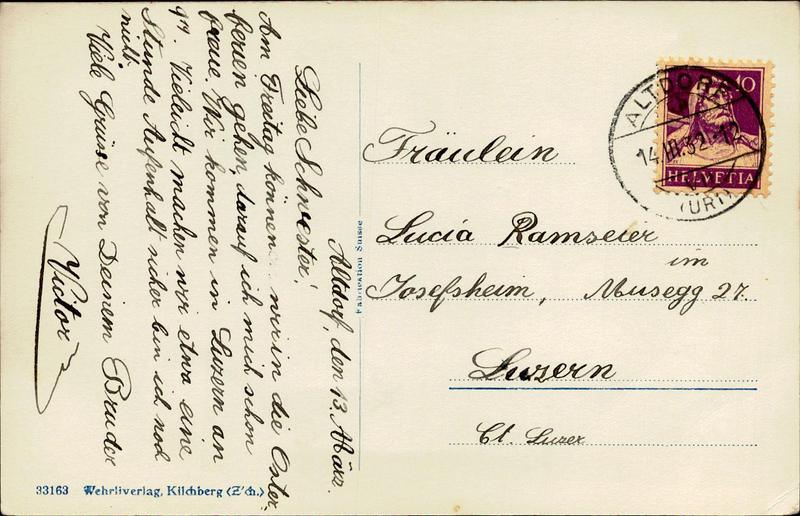 Altdorf, den 13. März.
Liebe Schwester!
Am Freitag können wir in die Oster-
ferien gehen, darauf ich mich schon
freue. Wir kommen in Luzern an
Vieleicht machen wir etwa eine
Stunde Aufenhalt sicher bin ich noch
nicht.
Viele Grüsse von Deinem Bruder
Victor
33163 Wehrliverlag, Kilchberg (Z'ch.)
Fabrication Suisse
10
HELVETIA
ALTDORF
14.III.32-12
(URI)
Fräulein
Lucia Ramseier
im
Josefsheim, Musegg 27.
Luzern
Ct. Luzern